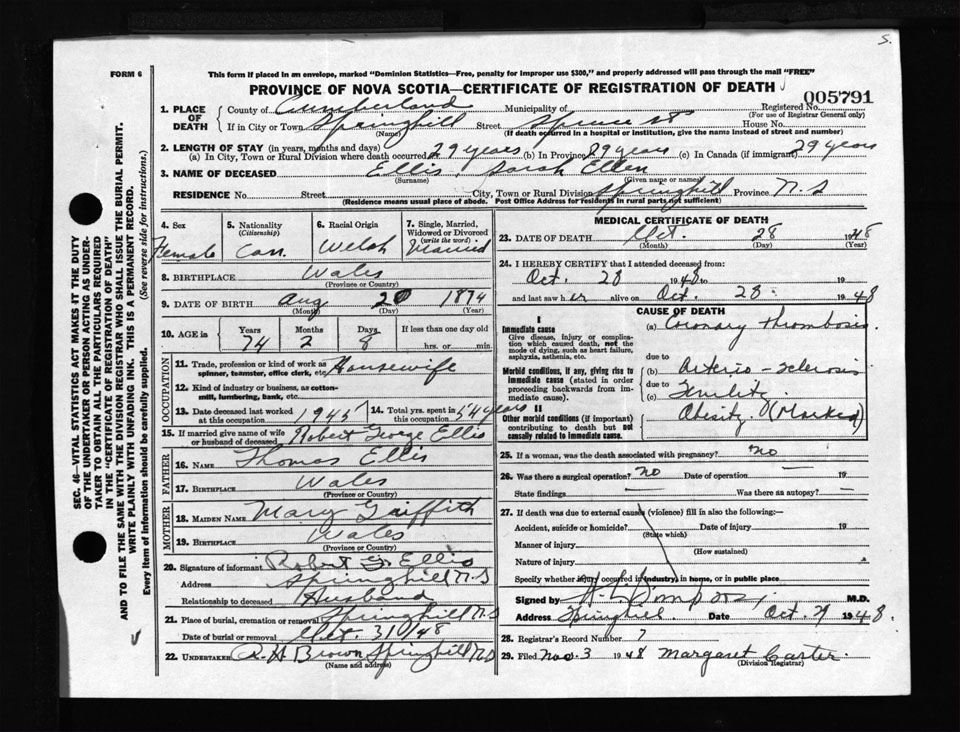 S.
FORM 6
This form if placed in an envelope, marked "Dominion Statistics—Free, penalty for improper use $300," and properly addressed will pass through the mail "FREE"
PROVINCE OF NOVA SCOTIA—CERTIFICATE OF REGISTRATION OF DEATH
005791
SEC. 46—VITAL STATISTICS ACT MAKES IT THE DUTY
OF THE UNDERTAKER OR PERSON ACTING AS UNDER-
TAKER TO OBTAIN ALL THE PARTICULARS REQUIRED
IN THE "CERTIFICATE OF REGISTRATION OF DEATH"
AND TO FILE THE SAME WITH THE DIVISION REGISTRAR WHO SHALL ISSUE THE BURIAL PERMIT.
WRITE PLAINLY WITH UNFADING INK. THIS IS A PERMANENT RECORD.
Every item of Information should be carefully supplied. (See reverse side for instructions.)
1. PLACE OF DEATH
County of Cumberland Municipality of Registered No.
(For use of Registrar General only)
If in City or Town Springhill Street Spruce St House No.
(Name) (If death occurred in a hospital or institution, give the name instead of street and number)
2. LENGTH OF STAY (in years, months and days)
(a) In City, Town or Rural Division where death occurred 29 years (b) In Province 29 years (c) In Canada (if immigrant) 29 years
3. NAME OF DECEASED Ellis Sarah Ellen
(Surname) (Given name or names)
RESIDENCE No. Street City, Town or Rural Division Springhill Province N.S
(Residence means usual place of abode. Post Office Address for residents in rural parts not sufficient)
4. Sex 5. Nationality (Citizenship) 6. Racial Origin 7. Single, Married, Widowed or Divorced (write the word)
Female Can. Welsh Married
8. BIRTHPLACE Wales
(Province or Country)
9. DATE OF BIRTH Aug 20 1874
(Month) (Day) (Year)
10. AGE in Years Months Days If less than one day old
74 2 8 hrs. or min.
OCCUPATION
11. Trade, profession or kind of work as spinner, teamster, office clerk, etc. Housewife
12. Kind of industry or business, as cotton-mill, lumbering, bank, etc.
13. Date deceased last worked at this occupation 1945 14. Total yrs. spent in this occupation 54 years
15. If married give name of wife or husband of deceased Robert George Ellis
FATHER
16. NAME Thomas Ellis
17. BIRTHPLACE Wales
(Province or Country)
MOTHER
18. MAIDEN NAME Mary Griffith
19. BIRTHPLACE Wales
(Province or Country)
20. Signature of informant Robert G. Ellis
Address Springhill N.S
Relationship to deceased Husband
21. Place of burial, cremation or removal Springhill N.S
Date of burial or removal Oct. 31/48
22. UNDERTAKER R.H Brown Springhill N.S
(Name and address)
MEDICAL CERTIFICATE OF DEATH
23. DATE OF DEATH Oct. 28 1948
(Month) (Day) (Year)
24. I HEREBY CERTIFY that I attended deceased from:
Oct. 28 1948 to 19
and last saw her alive on Oct. 28. 1948
CAUSE OF DEATH
I
Immediate cause (a) Coronary Thrombosis.
Give disease, injury or complication which caused death, not the mode of dying, such as heart failure, asphyxia, asthenia, etc.
due to
Morbid conditions, if any, giving rise to immediate cause (stated in order proceeding backwards from immediate cause).
(b) Arterio-sclerosis
due to
(c)
II
Other morbid conditions (if important) contributing to death but not causally related to immediate cause.
Obesity (Marked)
25. If a woman, was the death associated with pregnancy? no
26. Was there a surgical operation? no Date of operation — 19
State findings — Was there an autopsy? —
27. If death was due to external causes (violence) fill in also the following:—
Accident, suicide or homicide? Date of injury 19
(State which)
Manner of injury
(How sustained)
Nature of injury
Specify whether injury occurred in industry, in home, or in public place
Signed by M.D.
Address Springhill. Date Oct. 1948.
28. Registrar's Record Number 7
29. Filed Nov. 3 1948 Margaret Carter.
(Division Registrar)